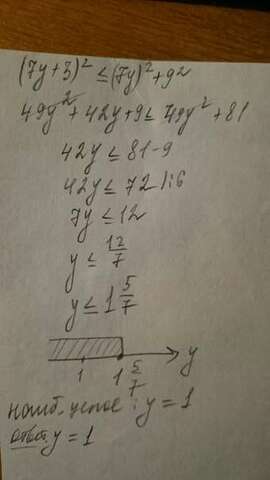 (7y+3)² ≤ (7y)² + 9²
49y² + 42y + 9 ≤ 49y² + 81
42y ≤ 81 - 9
42y ≤ 72 | : 6
7y ≤ 12
y ≤ 12/7
y ≤ 1 5/7
1 1 5/7 y
: y = 1
Ответ: y = 1